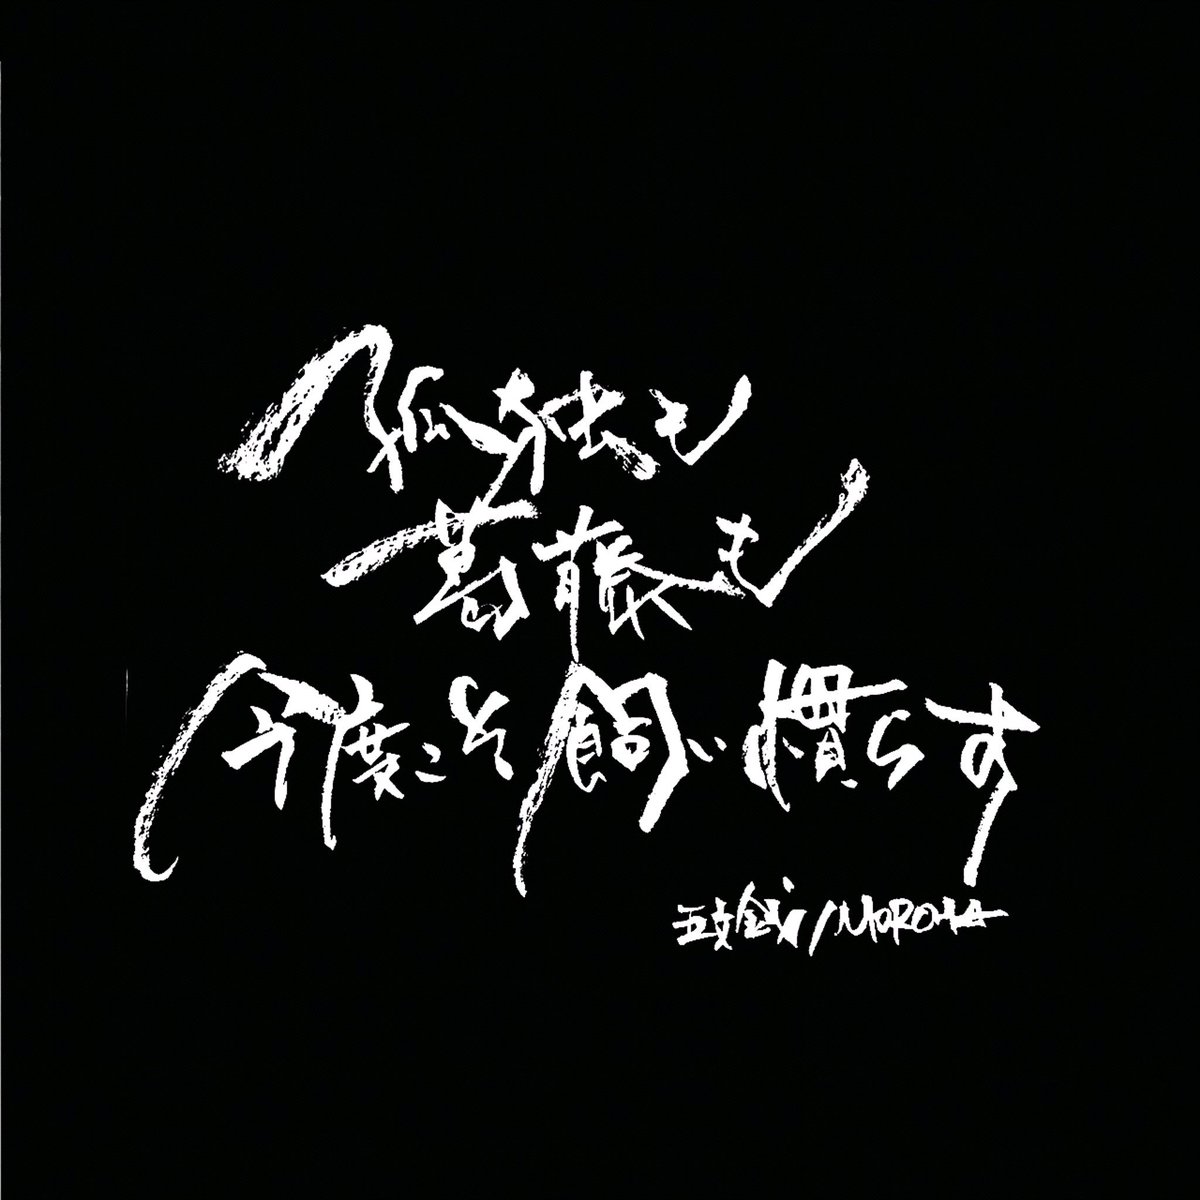 孤独も
葛藤も
今度こそ飼い慣らす
五文銭/MOROHA